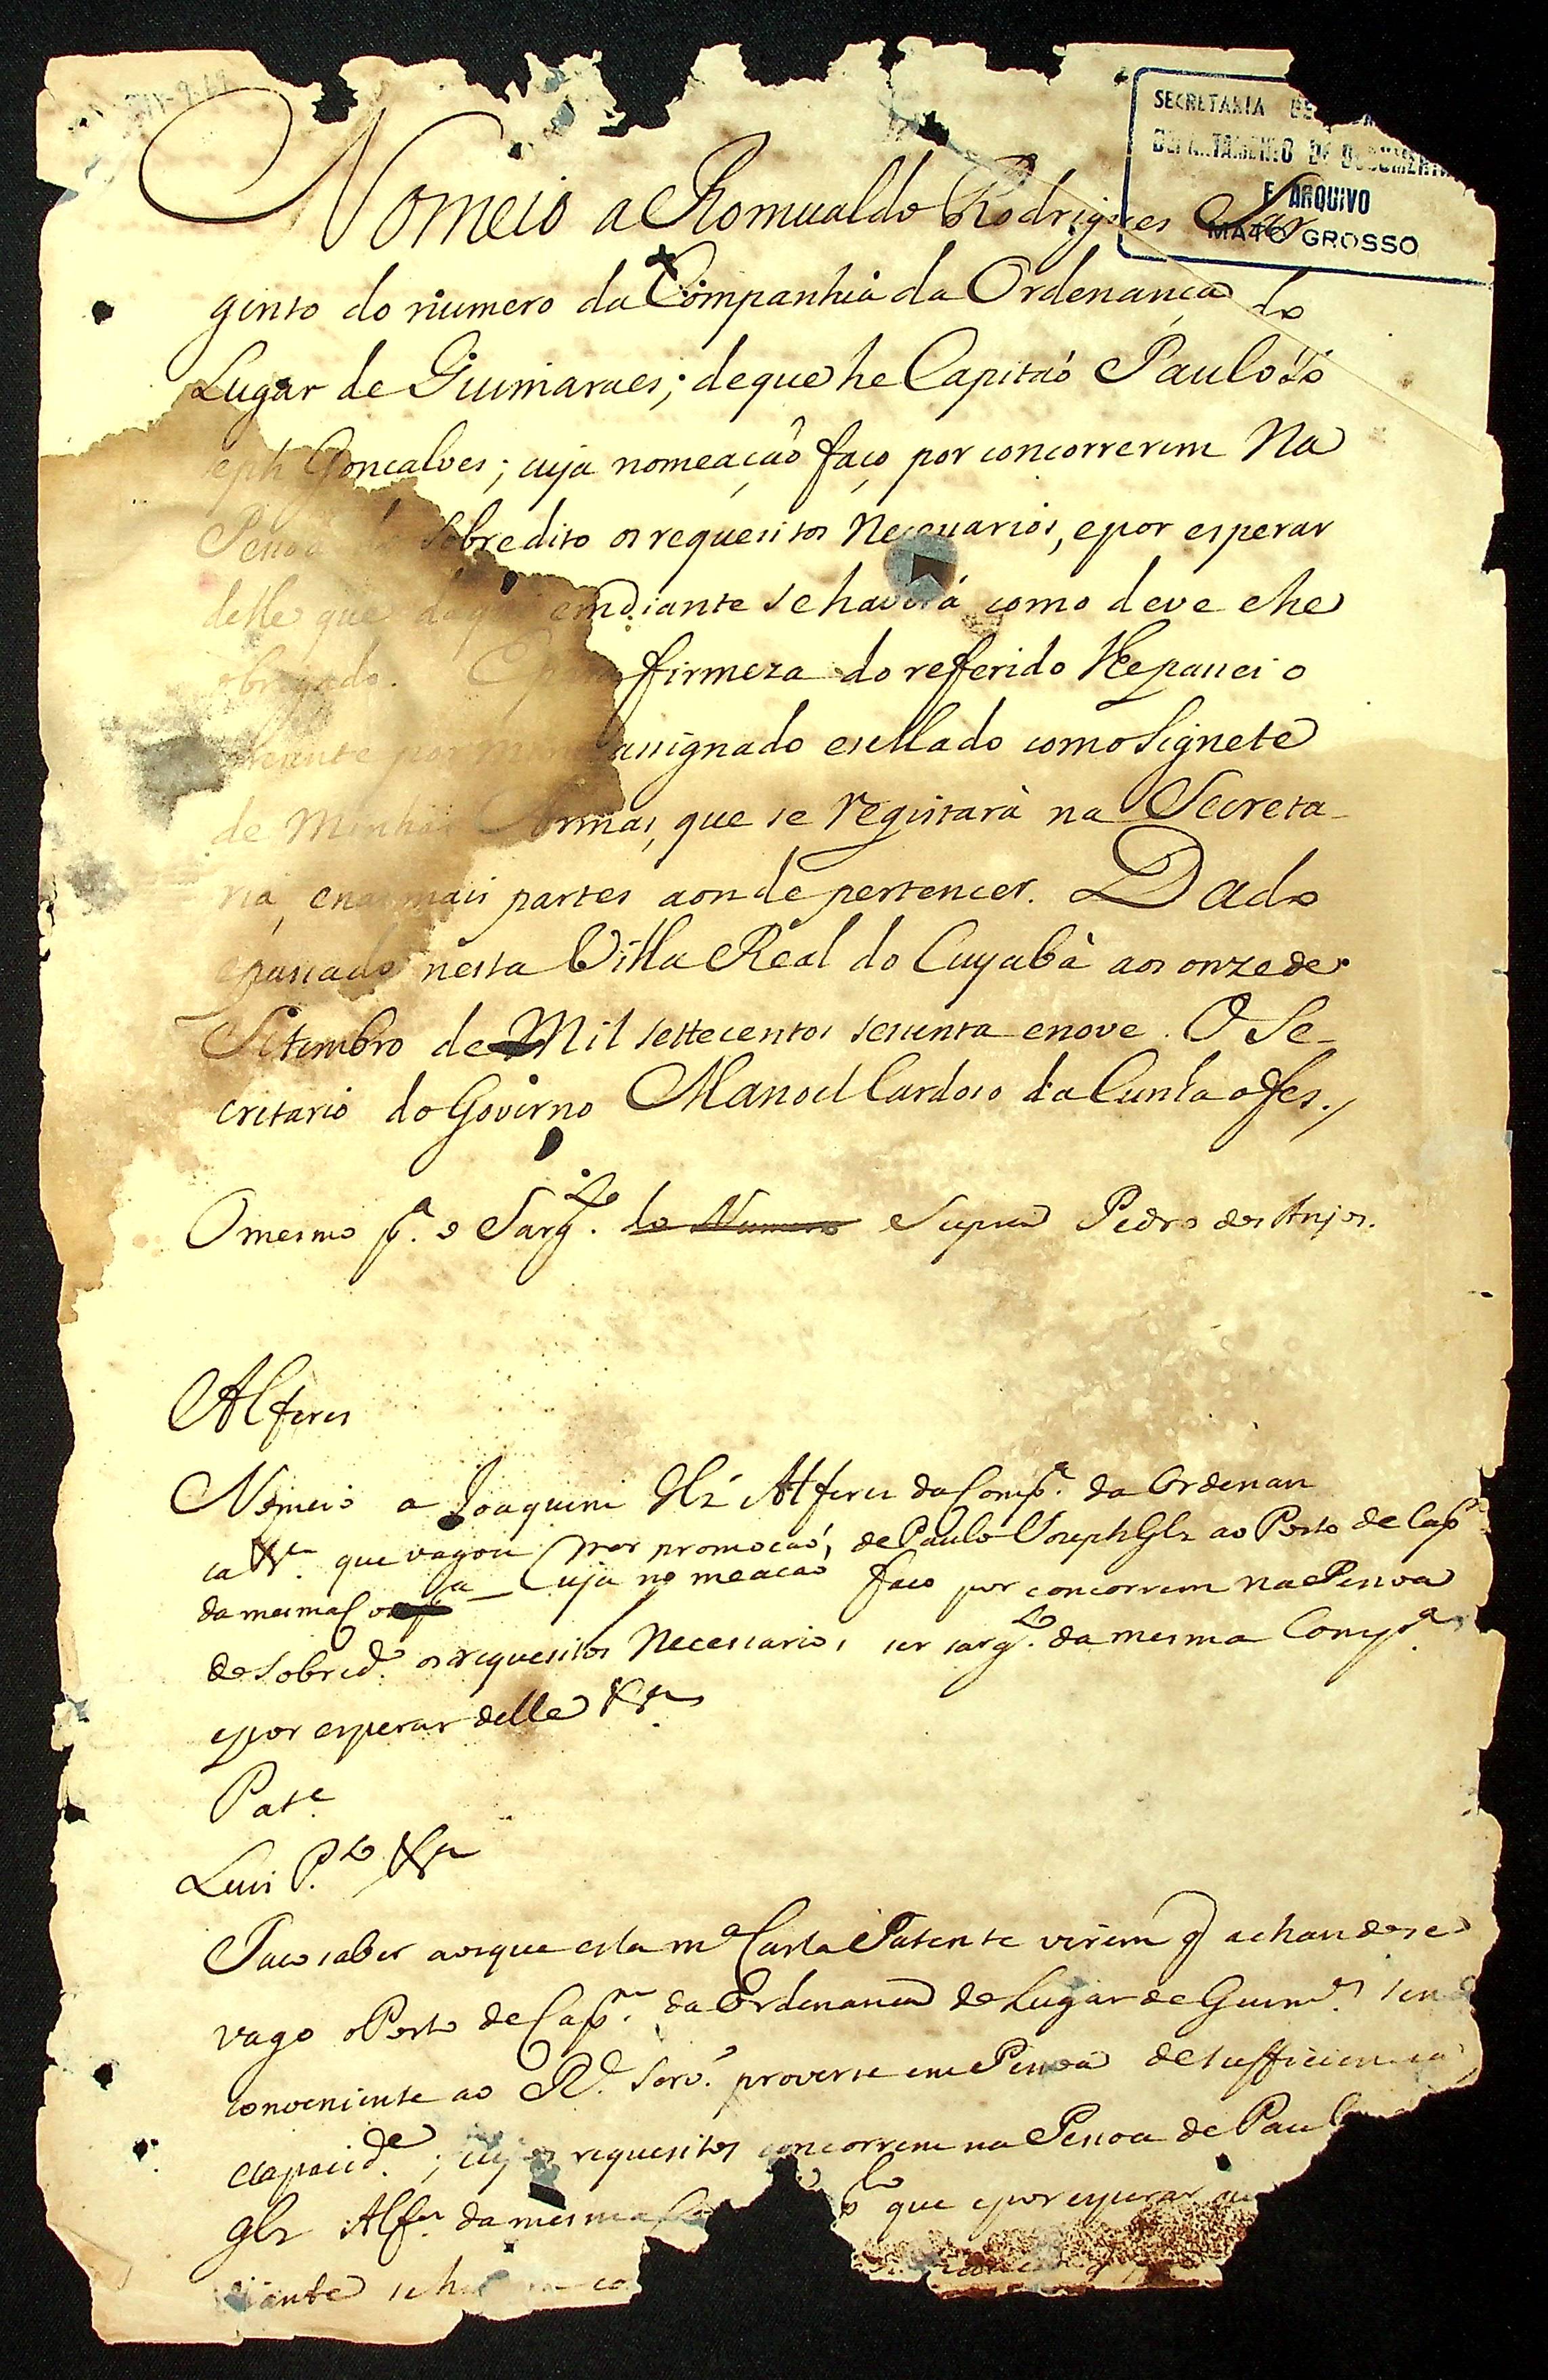 SECRETARIA DE
DEPARTAMENTO DE DOCUMENTA
E ARQUIVO
MATO GROSSO
Nomeio a Romualdo Rodrigues Sar
gento do numero da Companhia da Ordenança do
Lugar de Guimaraes; de que he Capitaó Paulo Jo
seph Goncalves; cuja nomeaçaõ faço por concorrerem na
Pessoa do Sobredito os requesitos Necessarios, e por esperar
delle que daqui emdiante se haverá como deve e he
obrigado. E para firmeza do referido lhe passei o
prezente por mim assignado e sellado com o Signete
de Minhas Armas, que se registará na Secreta-
ria, e nas mais partes aonde pertencer. Dado
e passado nesta Villa Real do Cuyabá aos onze de
Setembro de Mil settecentos sesenta e nove. O Se-
cretario do Governo Manoel Cardoso da Cunha o fes./
O mesmo pª. o Sargto. do Numero Supra Pedro dos Anjos.
Alferes
Nomeio a Joaquim Glz Alferes da Compª. da Ordenan
ca &ª. que vagou por promocaó, de Paulo Joseph Glz ao Posto de Capm
da mesma Compª — Cuja nomeacaó faco por concorrerem na Pessoa
do Sobredº. os requesitos Necessarios, ser sargto. da mesma Compª
e por esperar delle &ª
Pate
Luis Pto &ª
Faco saber aos que esta mª Carta Patente virem q achandose
vago o Posto de Capm. da Ordenanca do Lugar de Guims. send
conveniente ao Rl. Servº. proverse em Pessoa de sufficiencia
e capacide.; cujos requesitos concorrem na Pessoa de Paul
Glz Alfs. da mesma que e por esperar
diante se ha